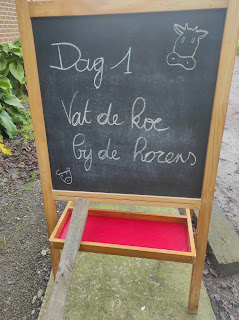 Dag 1
Vat de koe
bij de horens